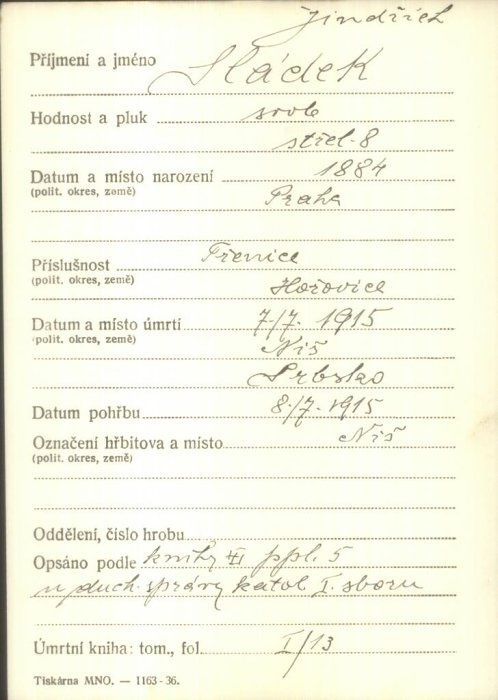 Jindřich
Příjmení a jméno Sládek
Hodnost a pluk svob
střel. 8
Datum a místo narození 1884
(polit. okres, země) Praha
Příslušnost Třenice
(polit. okres, země) Hořovice
Datum a místo úmrtí 7./7. 1915
(polit. okres, země) Niš
Srbsko
Datum pohřbu 8./7. 1915
Označení hřbitova a místo Niš
(polit. okres, země)
Oddělení, číslo hrobu
Opsáno podle knihy ppl. 5
u duch. správy katol I. sboru
Úmrtní kniha: tom., fol. I/13
Tiskárna MNO. — 1163-36.